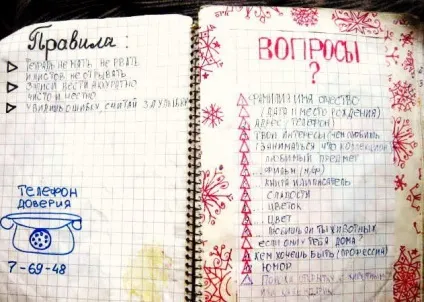 Правила:
Тетрадь не мять, не рвать
и листов не отрывать
Записи вести аккуратно
чисто и честно
Увидишь ошибку, считай за улыбку
ТЕЛЕФОН
ДОВЕРИЯ
7-69-48
ВОПРОСЫ
?
ФАМИЛИЯ ИМЯ ОЧЕСТВО
ДАТА И МЕСТО РОЖДЕНИЯ)
АДРЕС, ТЕЛЕФОН)
ТВОИ ИНТЕРЕСЫ (ЧЕМ ЛЮБИШЬ
ЗАНИМАТЬСЯ, ЧТО
ЛЮБИМЫЙ ПРЕДМЕТ
...ФИЛЬМ (М/Ф)
КНИГА И ПИСАТЕЛЬ
СЛАДОСТИ
ЦВЕТОК
...ЦВЕТ
ЛЮБИШЬ ЛИ ТЫ ЖИВОТНЫХ
ЕСЛИ ОНИ У ТЕБЯ ДОМА?
КЕМ ХОЧЕШЬ БЫТЬ (ПРОФЕССИЯ)
ЮМОР